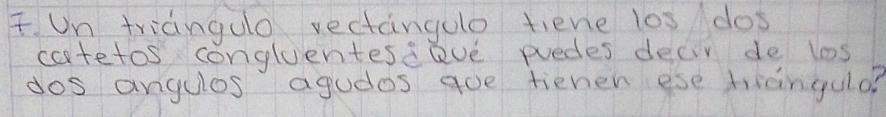 7. Un triángulo rectángulo tiene los dos
catetos congluentes ¿Qué puedes decir de los
dos angulos agudos que tienen ese triángulo?